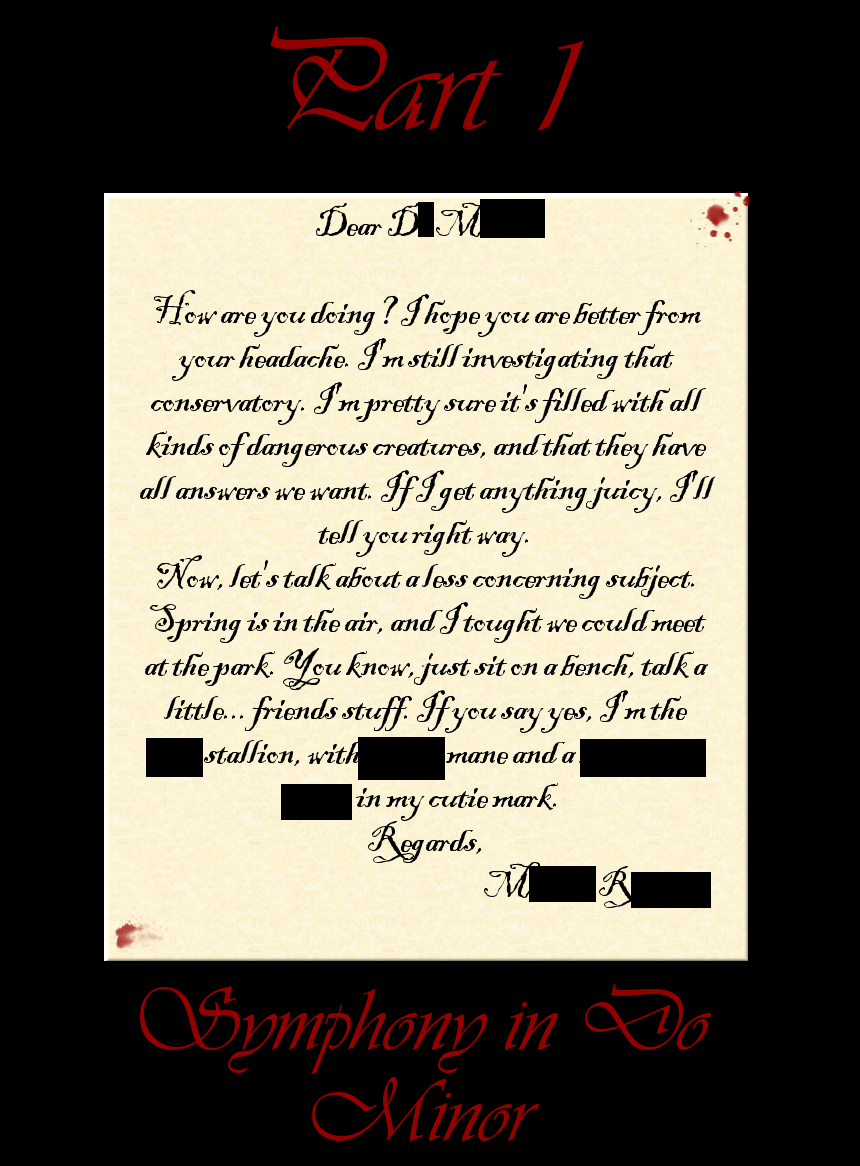 Part 1
Dear D M
How are you doing? I hope you are better from
your headache. I'm still investigating that
conservatory. I'm pretty sure it's filled with all
kinds of dangerous creatures, and that they have
all answers we want. If I get anything juicy, I'll
tell you right way.
Now, let's talk about a less concerning subject.
Spring is in the air, and I tought we could meet
at the park. You know, just sit on a bench, talk a
little... friends stuff. If you say yes, I'm the
stallion, with mane and a
in my cutie mark.
Regards,
M R
Symphony in Do
Minor